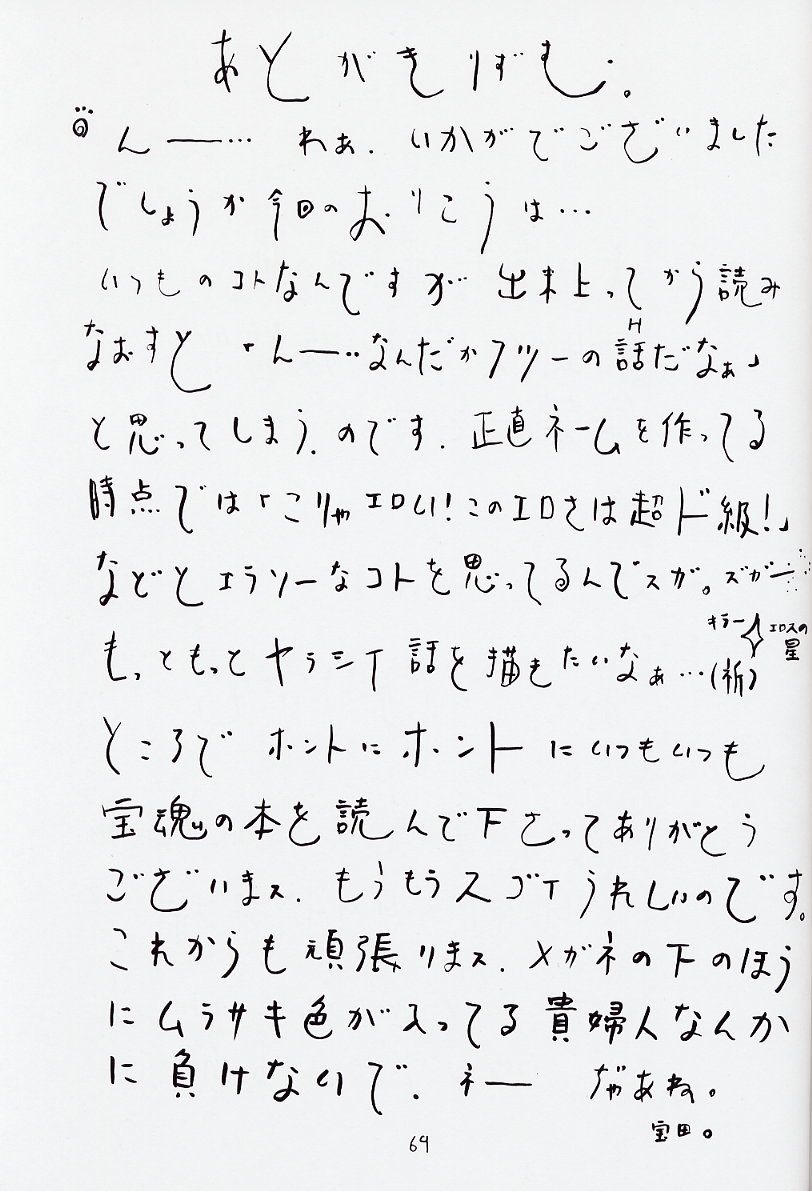 あとがきりずむ。
んーー… わぁ. いかがでございました
でしょうか今回のおりこうは…
いつものコトなんですが 出来上ってから読み
なおすと 「んー…なんだかフツーの話だなぁ」
H
と思ってしまう.のです. 正直ネームを作ってる
時点では「こりゃエロい!このエロさは超ド級!」
などとエラソーなコトを思ってるんでスガ。ズガー
キラー エロスの星
もっともっとヤラシイ話を描きたいなぁ…(祈)
ところで ホントにホントにいつもいつも
宝魂の本を読んで下さってありがとう
ございまス. もうもうスゴイうれしいのです。
これからも頑張りまス. メガネの下のほう
にムラサキ色が入ってる貴婦人なんか
に負けないで. ネー ぢゃあね。
宝田。
64